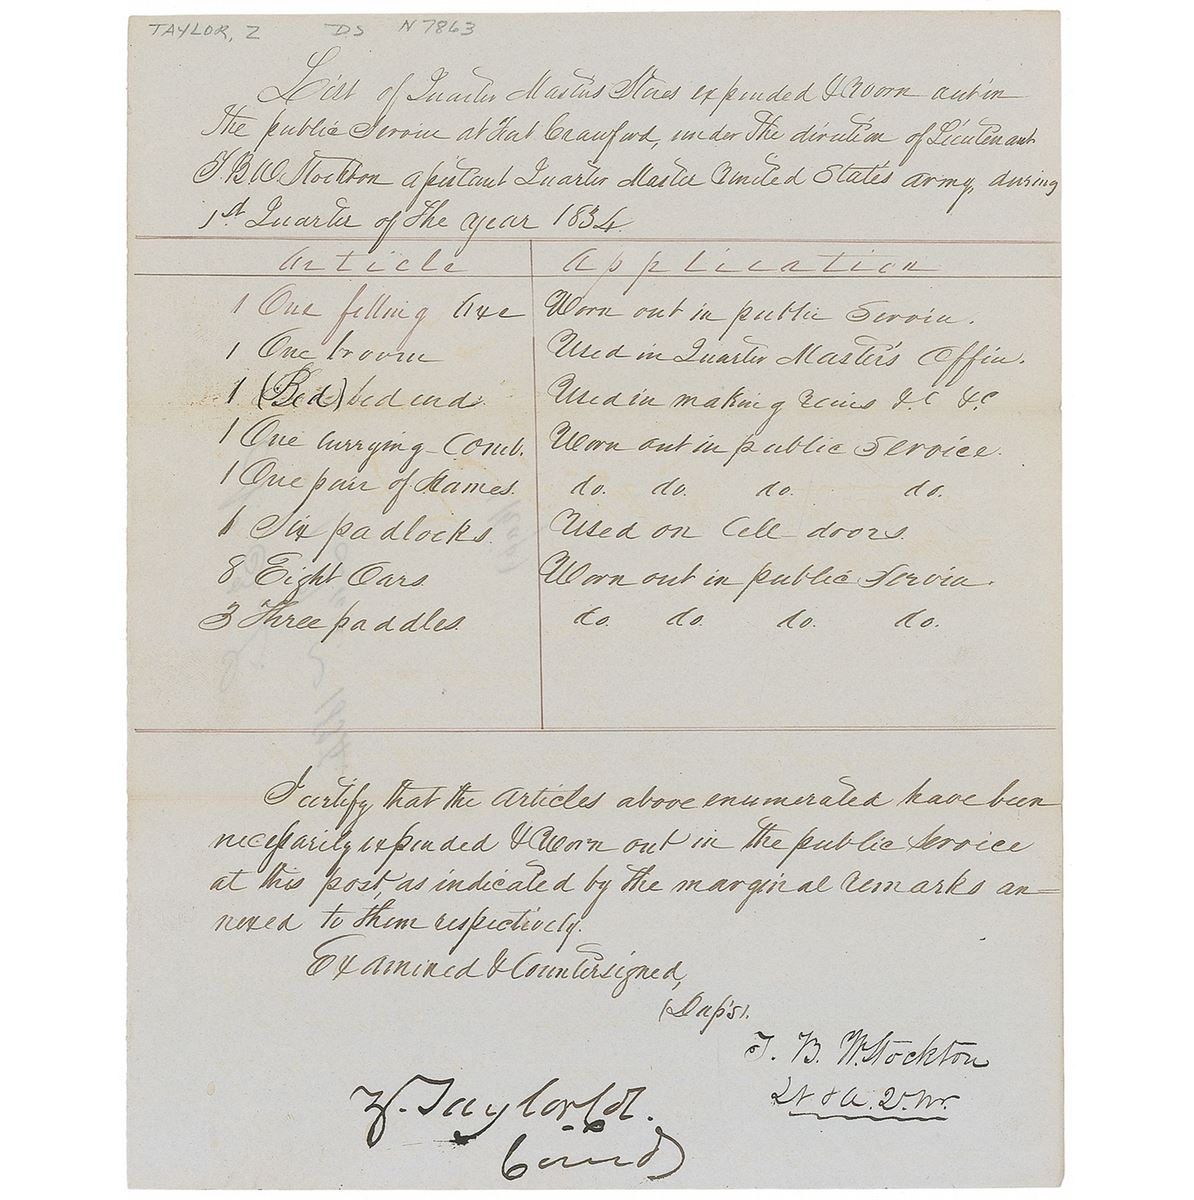 TAYLOR, Z DS N7863
List of Quarter Masters Stores expended & Worn out in
the public Service at Fort Crawford, under the direction of Lieutenant
T. B. W. Stockton assistant Quarter Master United States army, during
1st Quarter of the year 1834.
Article Application
1 One felling Axe Worn out in public Service.
1 One broom Used in Quarter Master's Office.
1 (Bed) bed cord. Used in making reins &c &c
1 One currying Comb. Worn out in public Service.
1 One pair of Hames. do. do. do. do.
6 Six padlocks. Used on Cell doors.
8 Eight Oars Worn out in public Service.
3 Three paddles. do. do. do. do.
I certify that the Articles above enumerated have been
necessarily expended & Worn out in the public Service
at this post, as indicated by the marginal remarks an-
nexed to them respectively.
Examined & Countersigned,
T. B. W. Stockton
Lt & A. Q. Mr.
Z. Taylor Col.
Comd